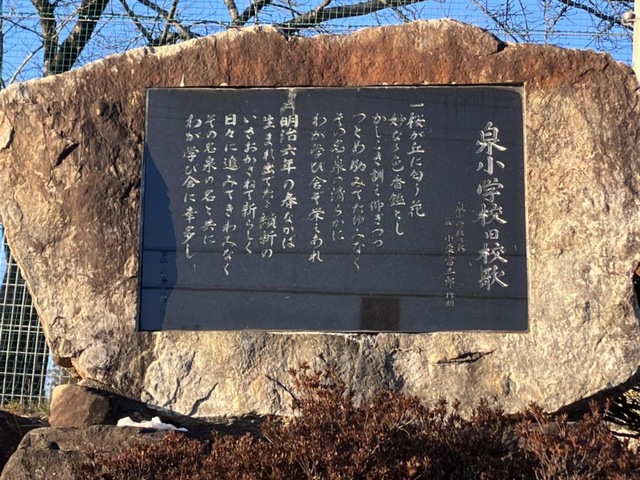 泉小学校旧校歌
一 桜が丘に匂う花
妙なる色香鑑とし
かしこき訓え仰ぎつつ
つとめ励みて倦みなく
その名泉の清らかに
わが学び舎に栄えあれ
二 明治六年の春なかば
生まれ出でて
いさおかさねて新らしく
日々に進みて
その名泉の名と共に
わが学び舎に幸多し